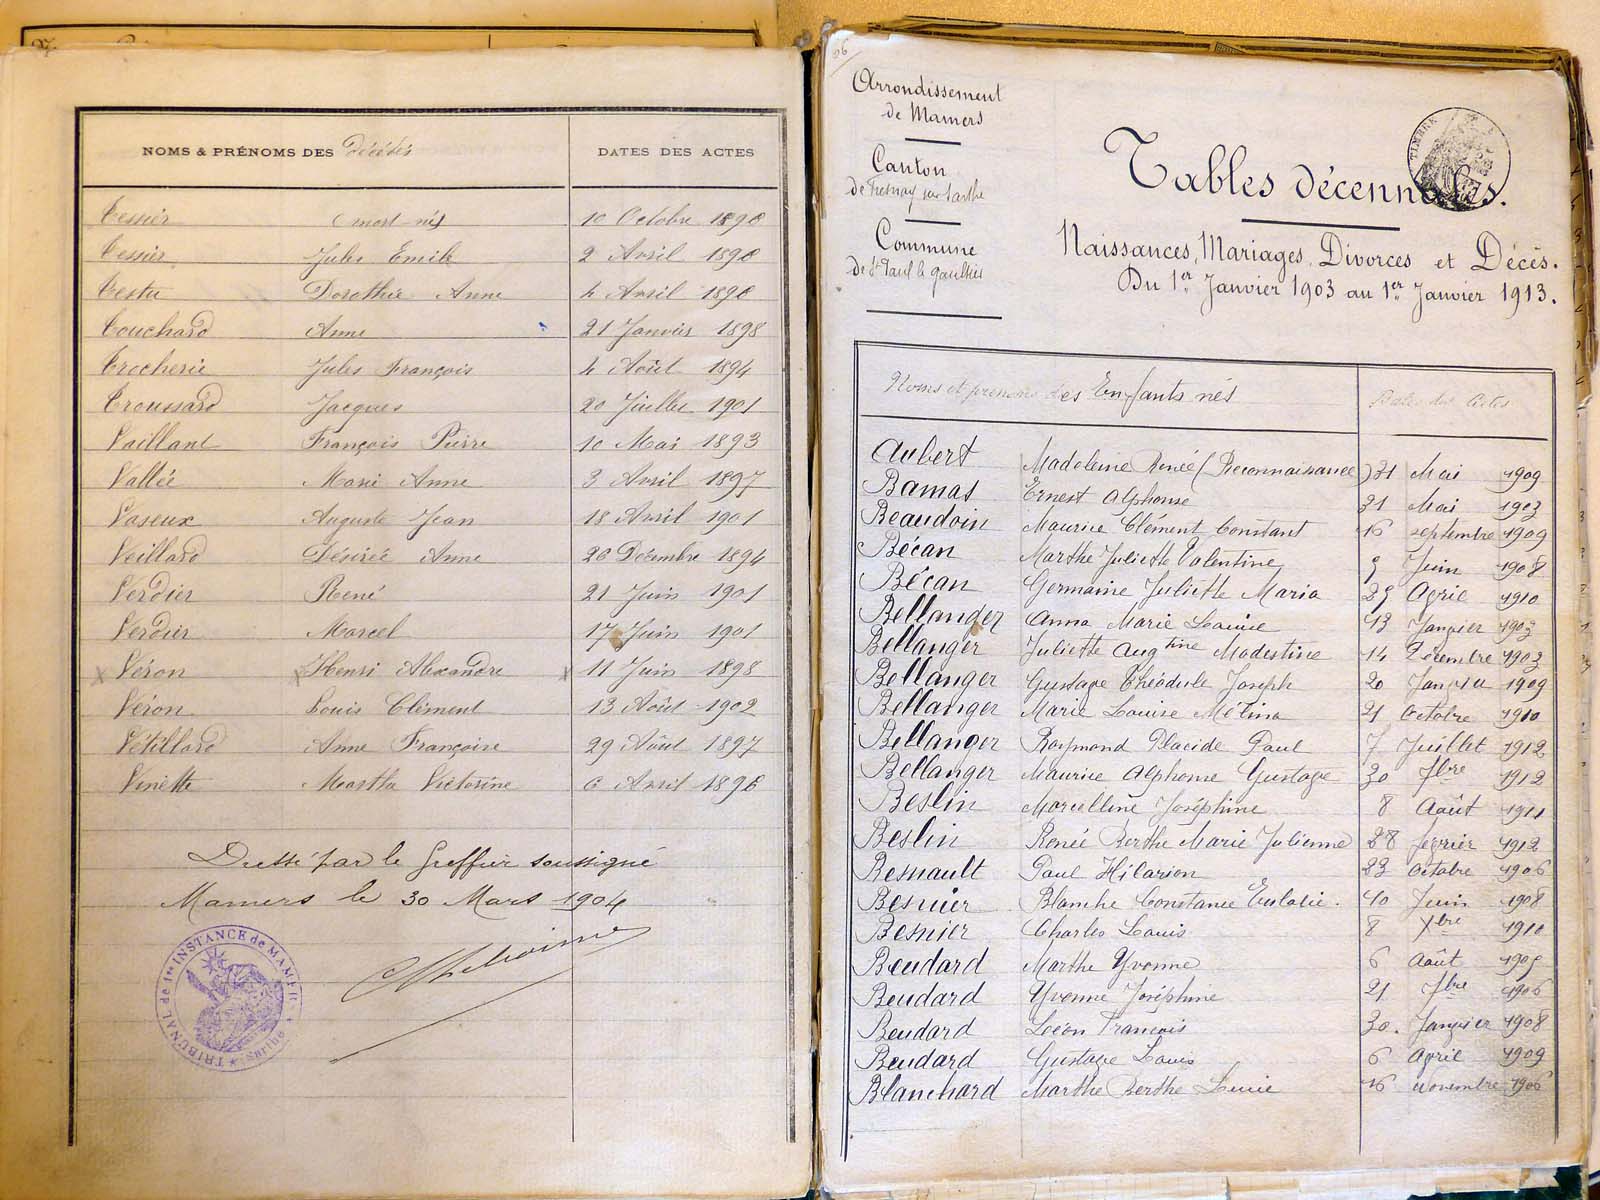 NOMS & PRÉNOMS DES Décédés DATES DES ACTES
Tessier (mort-né) 10 Octobre 1898
Tessier Jules Emile 2 Avril 1898
Testu Dorothée Anne 4 Avril 1898
Touchard Anne 21 Janvier 1898
Trocherie Jules François 4 Août 1894
Troussard Jacques 20 Juillet 1901
Vaillant François Pierre 10 Mai 1893
Vallée Marie Anne 3 Avril 1897
Vaseux Auguste Jean 18 Avril 1901
Veillard Désirée Anne 26 Décembre 1894
Verdier René 21 Juin 1901
Verdier Marcel 17 Juin 1901
x Véron x Henri Alexandre x 11 Juin 1898
Véron Louis Clément 13 Août 1902
Vétillard Anne Françoise 29 Août 1897
Vinette Martha Victorine 6 Avril 1898
Dressé par le Greffier soussigné
Mamers le 30 Mars 1904
TRIBUNAL de 1re INSTANCE de MAMERS (Sarthe)
Arrondissement
de Mamers
Canton
de Fresnay sur Sarthe
Commune
de St Paul le Gaultier
TIMBRE
Tables décennales.
Naissances, Mariages, Divorces et Décès.
Du 1er Janvier 1903 au 1er Janvier 1913.
Noms et prénoms des Enfants nés Dates des Actes
Aubert Madeleine Renée (Reconnaissance) 31 Mai 1909
Bamas Ernest Alphonse 21 Mai 1903
Beaudoin Maurice Clément Constant 16 septembre 1909
Bécan Marthe Juliette Valentine 9 Juin 1908
Bécan Germaine Juliette Maria 29 Avril 1910
Bellanger Anna Marie Louise 13 Janvier 1903
Bellanger Juliette Augtine Modestine 14 Décembre 1903
Bellanger Gustave Théodule Joseph 20 Janvier 1909
Bellanger Marie Louise Mélina 21 Octobre 1910
Bellanger Raymond Placide Paul 7 Juillet 1912
Bellanger Maurice Alphonse Gustave 30 7bre 1912
Beslin Marcelline Joséphine 8 Août 1911
Beslin Renée Berthe Marie Julienne 28 février 1912
Besnault Paul Hilarion 23 Octobre 1906
Besnier Blanche Constance Eulalie. 10 Juin 1908
Besnier Charles Louis 8 Xbre 1910
Beudard Marthe Yvonne 6 Août 1905
Beudard Yvonne Joséphine 21 7bre 1906
Beudard Léon François 30. Janvier 1908
Beudard Gustave Louis 6 Avril 1909
Blanchard Marthe Berthe Lucie 16 Novembre 1906